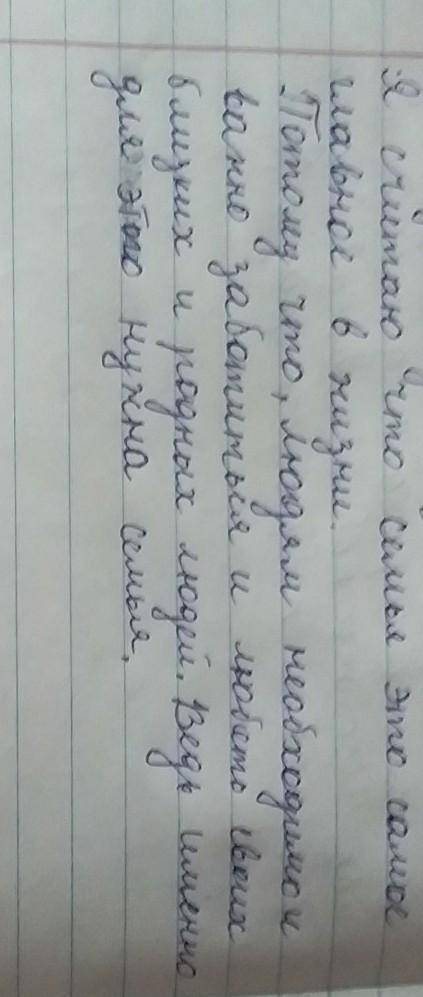 Я считаю что семья это самое
главное в жизни.
Потому что, людям необходимо и
важно заботиться и любить своих
близких и родных людей. Ведь именно
для этого нужна семья.